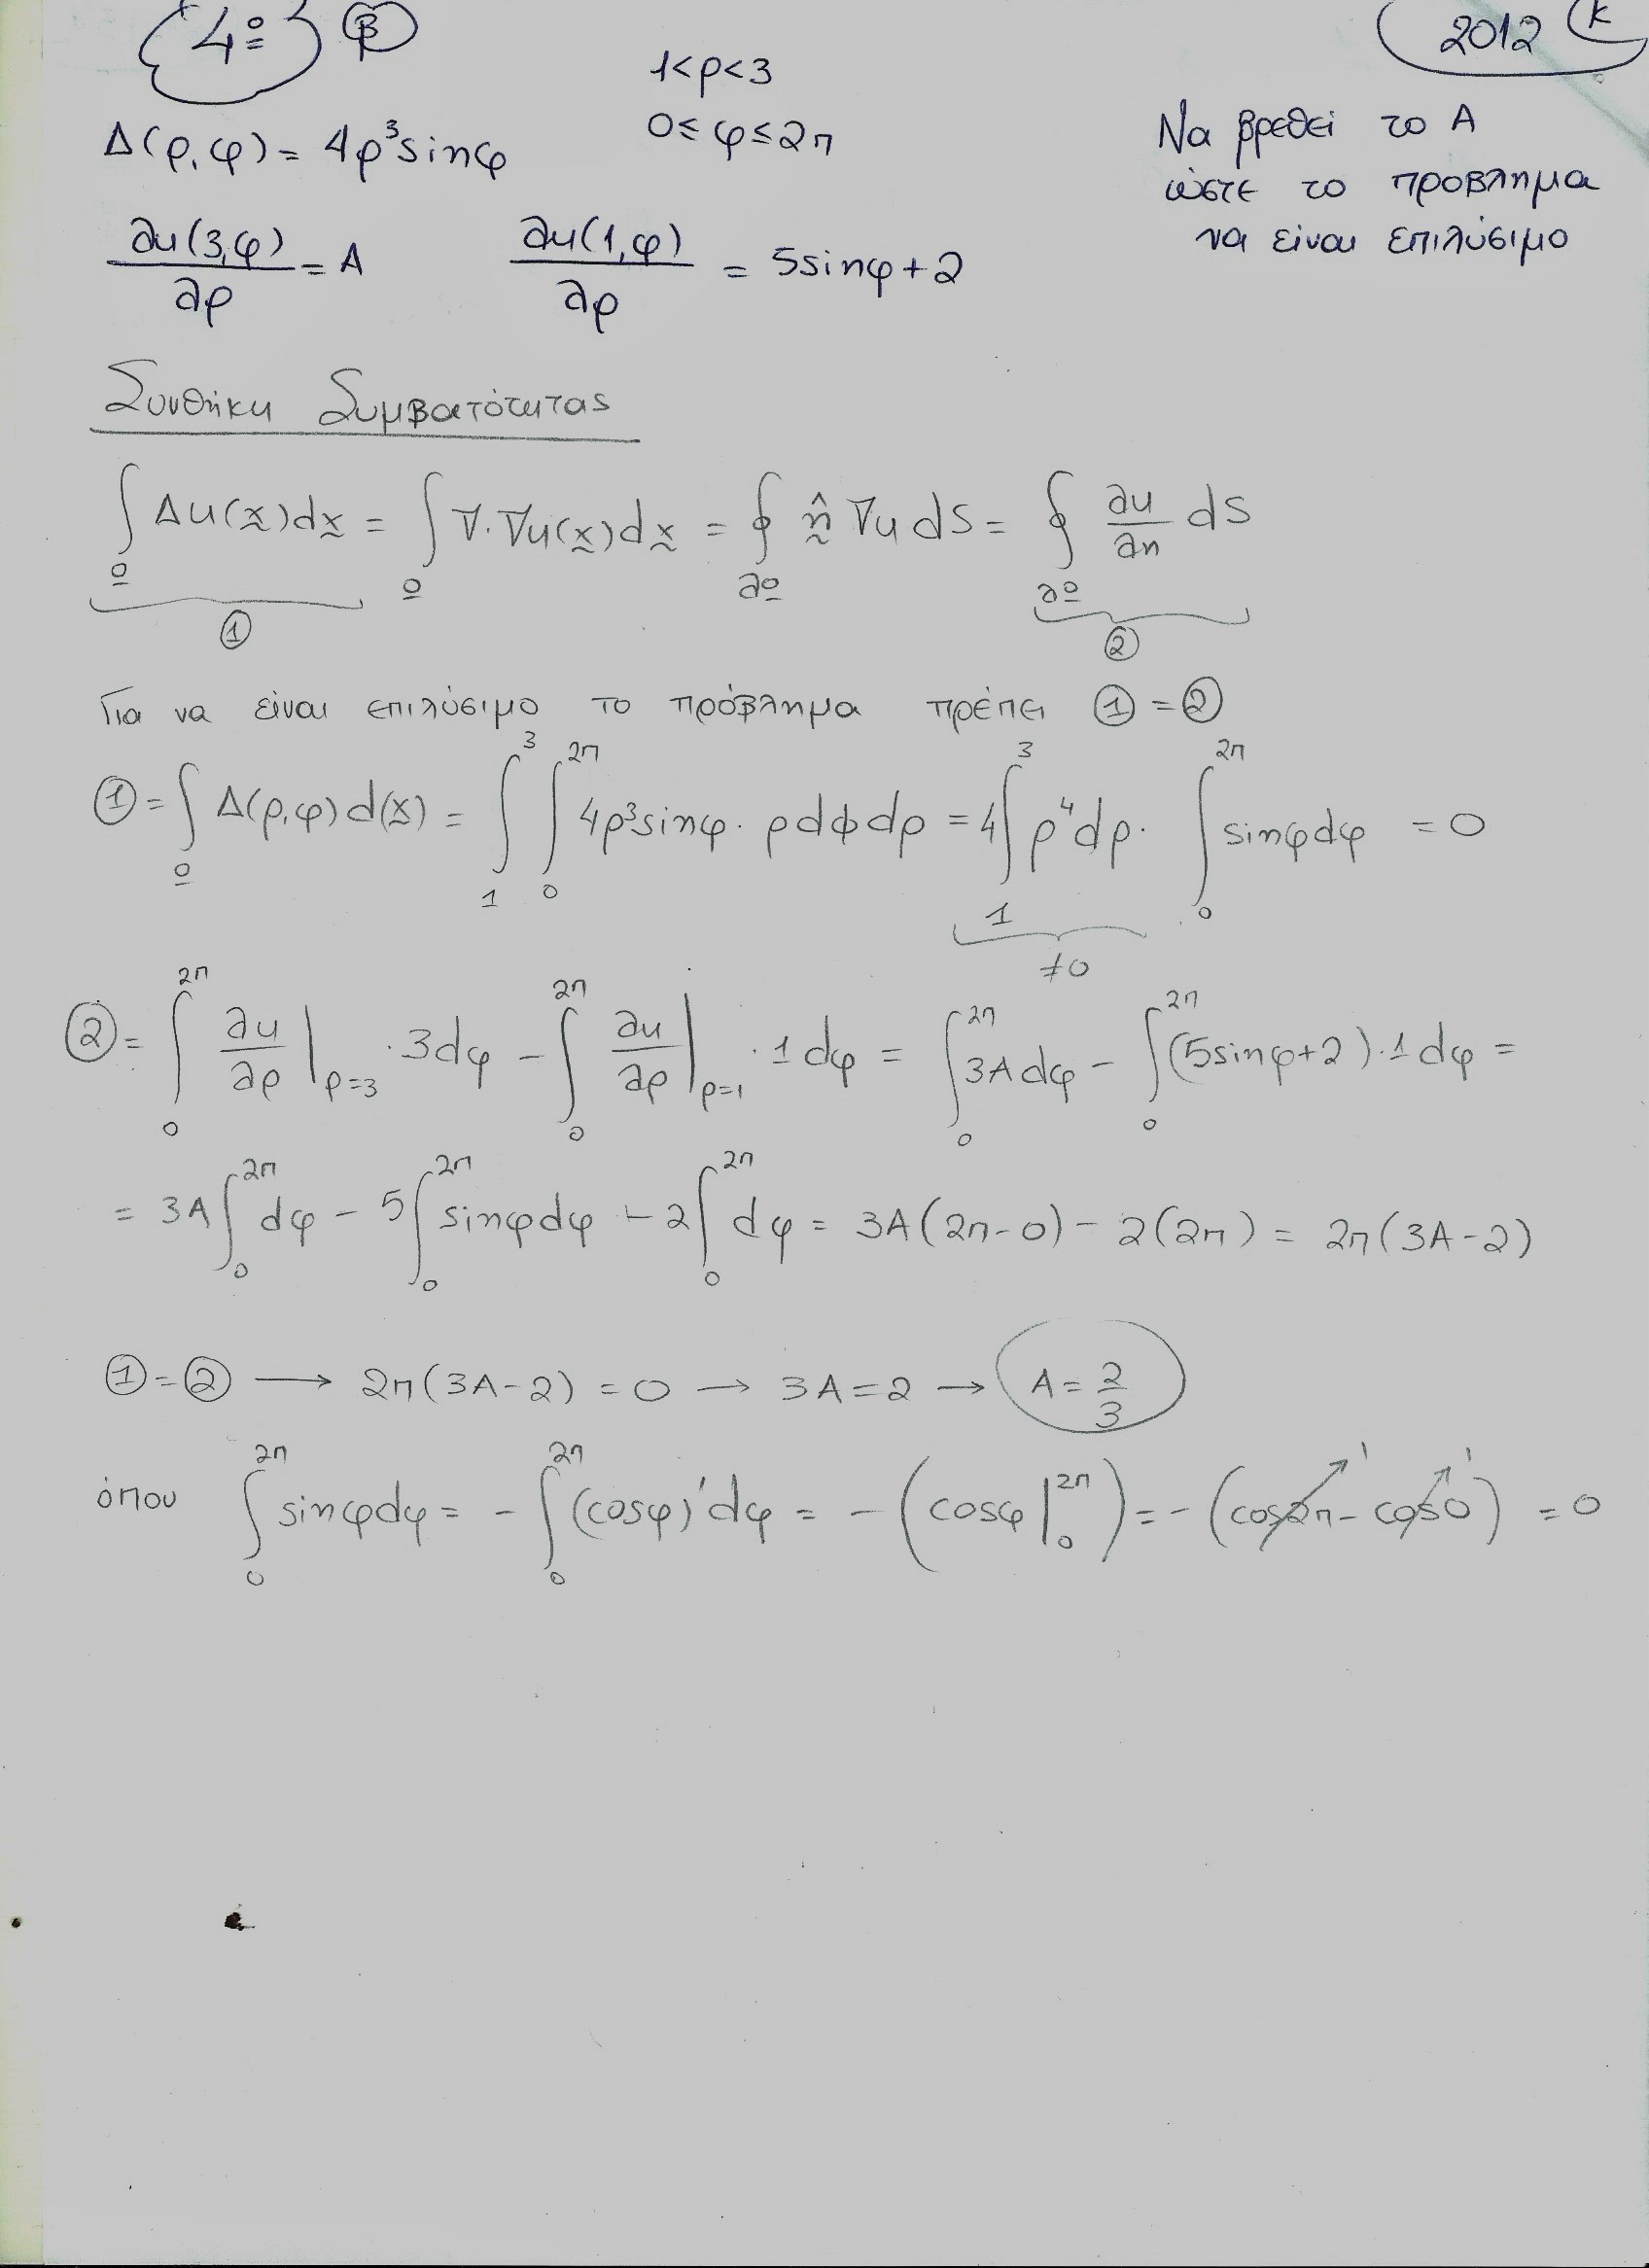 4º β 2012 κ
1<ρ<3
Δ(ρ,φ) = 4ρ³sinφ 0≤φ≤2π Να βρεθεί το Α
ώστε το προβλημα
να είναι επιλύσιμο
∂u(3,φ)/∂ρ = A ∂u(1,φ)/∂ρ = 5sinφ+2
Συνθήκη Συμβατότητας
∫_Ω Δu(x)dx = ∫_Ω ∇·∇u(x)dx = ∮_∂Ω n̂ ∇u dS = ∮_∂Ω ∂u/∂n dS
① ②
Για να είναι επιλύσιμο το πρόβλημα πρέπει ① = ②
① = ∫_Ω Δ(ρ,φ)d(x) = ∫_1^3 ∫_0^2π 4ρ³sinφ · ρdϕdρ = 4∫_1^3 ρ⁴dρ · ∫_0^2π sinφdφ = 0
≠0
② = ∫_0^2π ∂u/∂ρ|ρ=3 · 3dφ - ∫_0^2π ∂u/∂ρ|ρ=1 · 1dφ = ∫_0^2π 3Adφ - ∫_0^2π (5sinφ+2)·1dφ =
= 3A∫_0^2π dφ - 5∫_0^2π sinφdφ - 2∫_0^2π dφ = 3A(2π-0) - 2(2π) = 2π(3A-2)
① = ② → 2π(3A-2) = 0 → 3A=2 → A = 2/3
όπου ∫_0^2π sinφdφ = - ∫_0^2π (cosφ)'dφ = - (cosφ|_0^2π) = - (cos2π - cos0) = 0
1 1